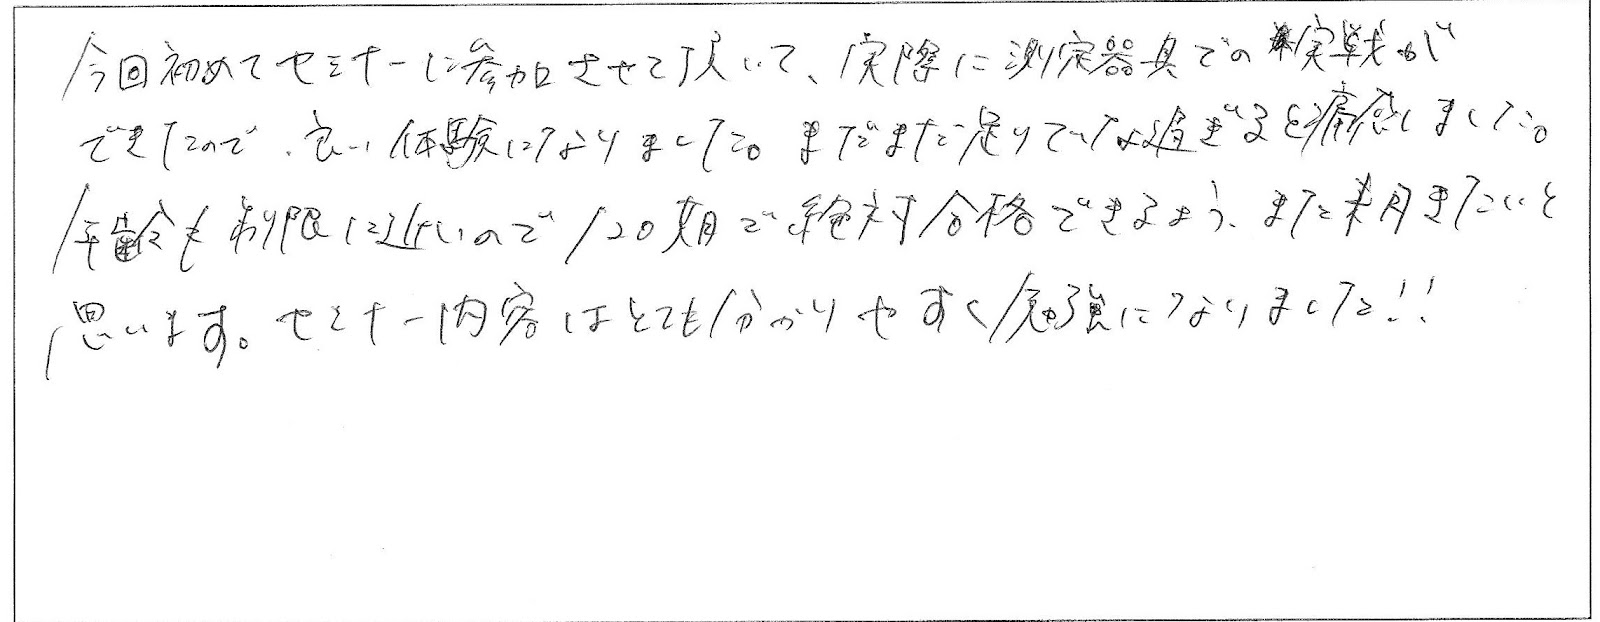 今回初めてセミナーに参加させて頂いて、実際に測定器具での実戦が
できたので、良い体験になりました。まだまだ足りていな過ぎると痛感しました。
年齢も制限に近いので120期で絶対合格できるよう、また来月きたいと
思います。セミナー内容はとても分かりやすく勉強になりました!!